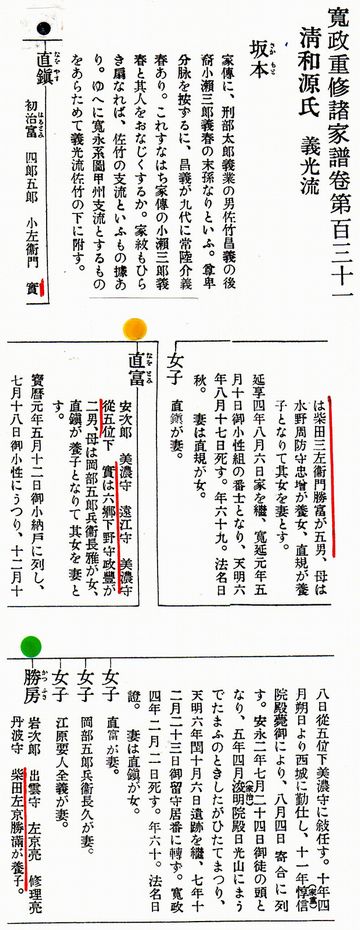 寛政重修諸家譜卷第百三十一
清和源氏 義光流
坂本
さかもと
家傳に、刑部太郎義業の男佐竹昌義の後
裔小瀬三郎義春の末孫なりといふ。尊卑
分脉を按ずるに、昌義が九代に常陸介義
春あり。これすなはち家傳の小瀬三郎義
春と其人をおなじくするか。家紋もひら
き扇なれば、佐竹の支流といふもの據あ
り。ゆへに寛永系圖甲州支流とするもの
をあらためて義光流佐竹の下に附す。
直鎭
なをやす
初治富 四郎五郎 小左衞門 實
は柴田三左衞門勝富が五男、母は
水野周防守忠增が養女、直規が養
子となりて其女を妻とす。
延享四年八月六日家を繼、寛延元年五
月十日御小性組の番士となり、天明六
年八月十七日死す。年六十九。法名日
秋。 妻は直規が女。
女子
直鎭が妻。
直富
なをとみ
安次郎 美濃守 遠江守 美濃守
從五位下 實は六郷下野守政豐が
二男、母は岡部五郎兵衞長雅が女、
直鎭が養子となりて其女を妻と
す。
寶曆元年五月十二日御小納戸に列し、
七月十八日御小性にうつり、十二月十
八日從五位下美濃守に敍任す。十年四
月朔日より西城に勤仕し、十一年惇信
院殿薨御により、八月四日寄合に列
す。安永二年七月二十四日御徒の頭と
なり、五年四月浚明院殿日光山にまう
でたまふのときしたがひたてまつり、
天明六年閏十月六日遺跡を繼、七年十
二月二十三日御留守居番に轉ず。寛政
四年二月二日死す。年六十。法名日
證。 妻は直鎭が女。
女子
直富が妻。
女子
岡部五郎兵衞長久が妻。
女子
江原要人全義が妻。
勝房
かつふさ
岩次郎 出雲守 左京亮 修理亮
丹波守 柴田左京勝滿が養子。